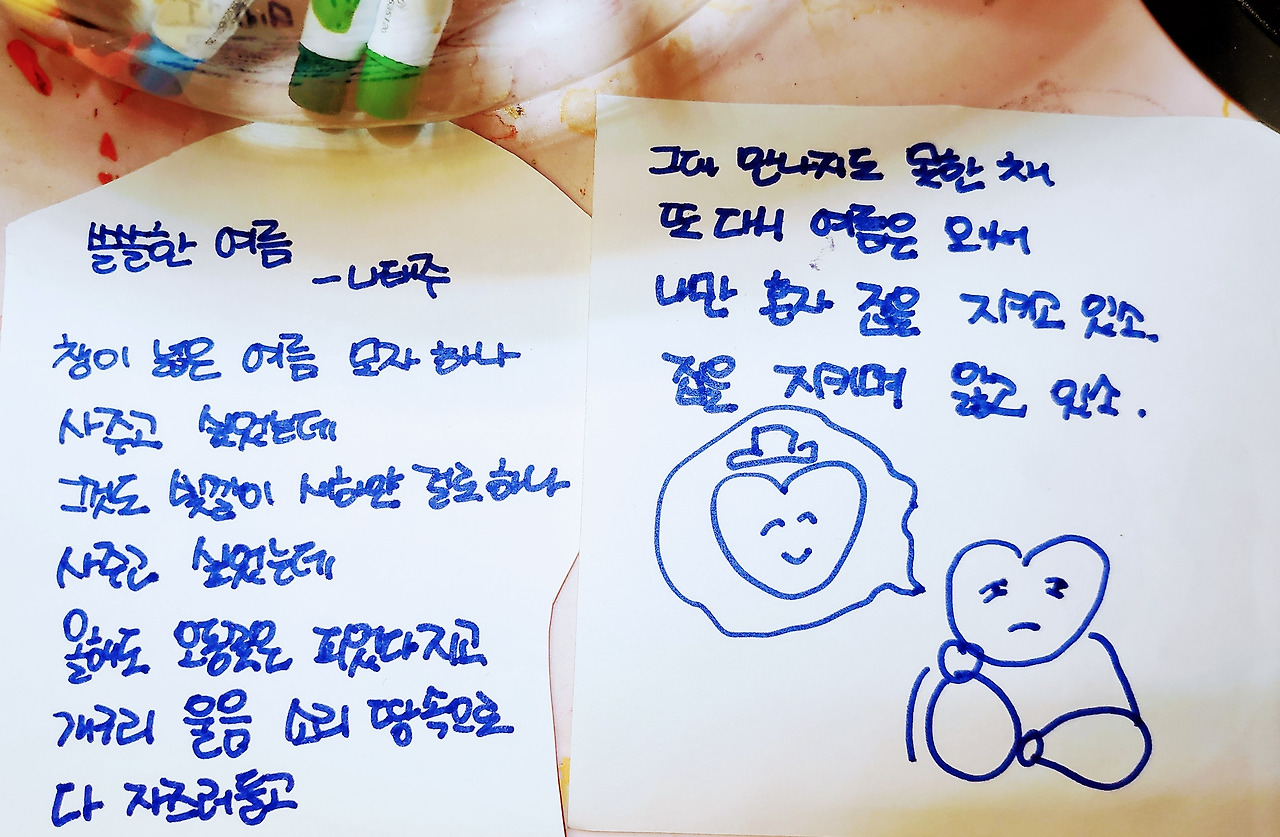 쓸쓸한 여름
-나태주
챙이 넓은 여름 모자 하나
사주고 싶었는데
그것도 빛깔이 새하얀 걸로 하나
사주고 싶었는데
올해도 오동꽃은 피었다 지고
개구리 울음 소리 땅속으로
다 자즈러들고
그대 만나지도 못한 채
또 다시 여름은 와서
나만 혼자 집을 지키고 있소.
집을 지키며 앓고 있소.